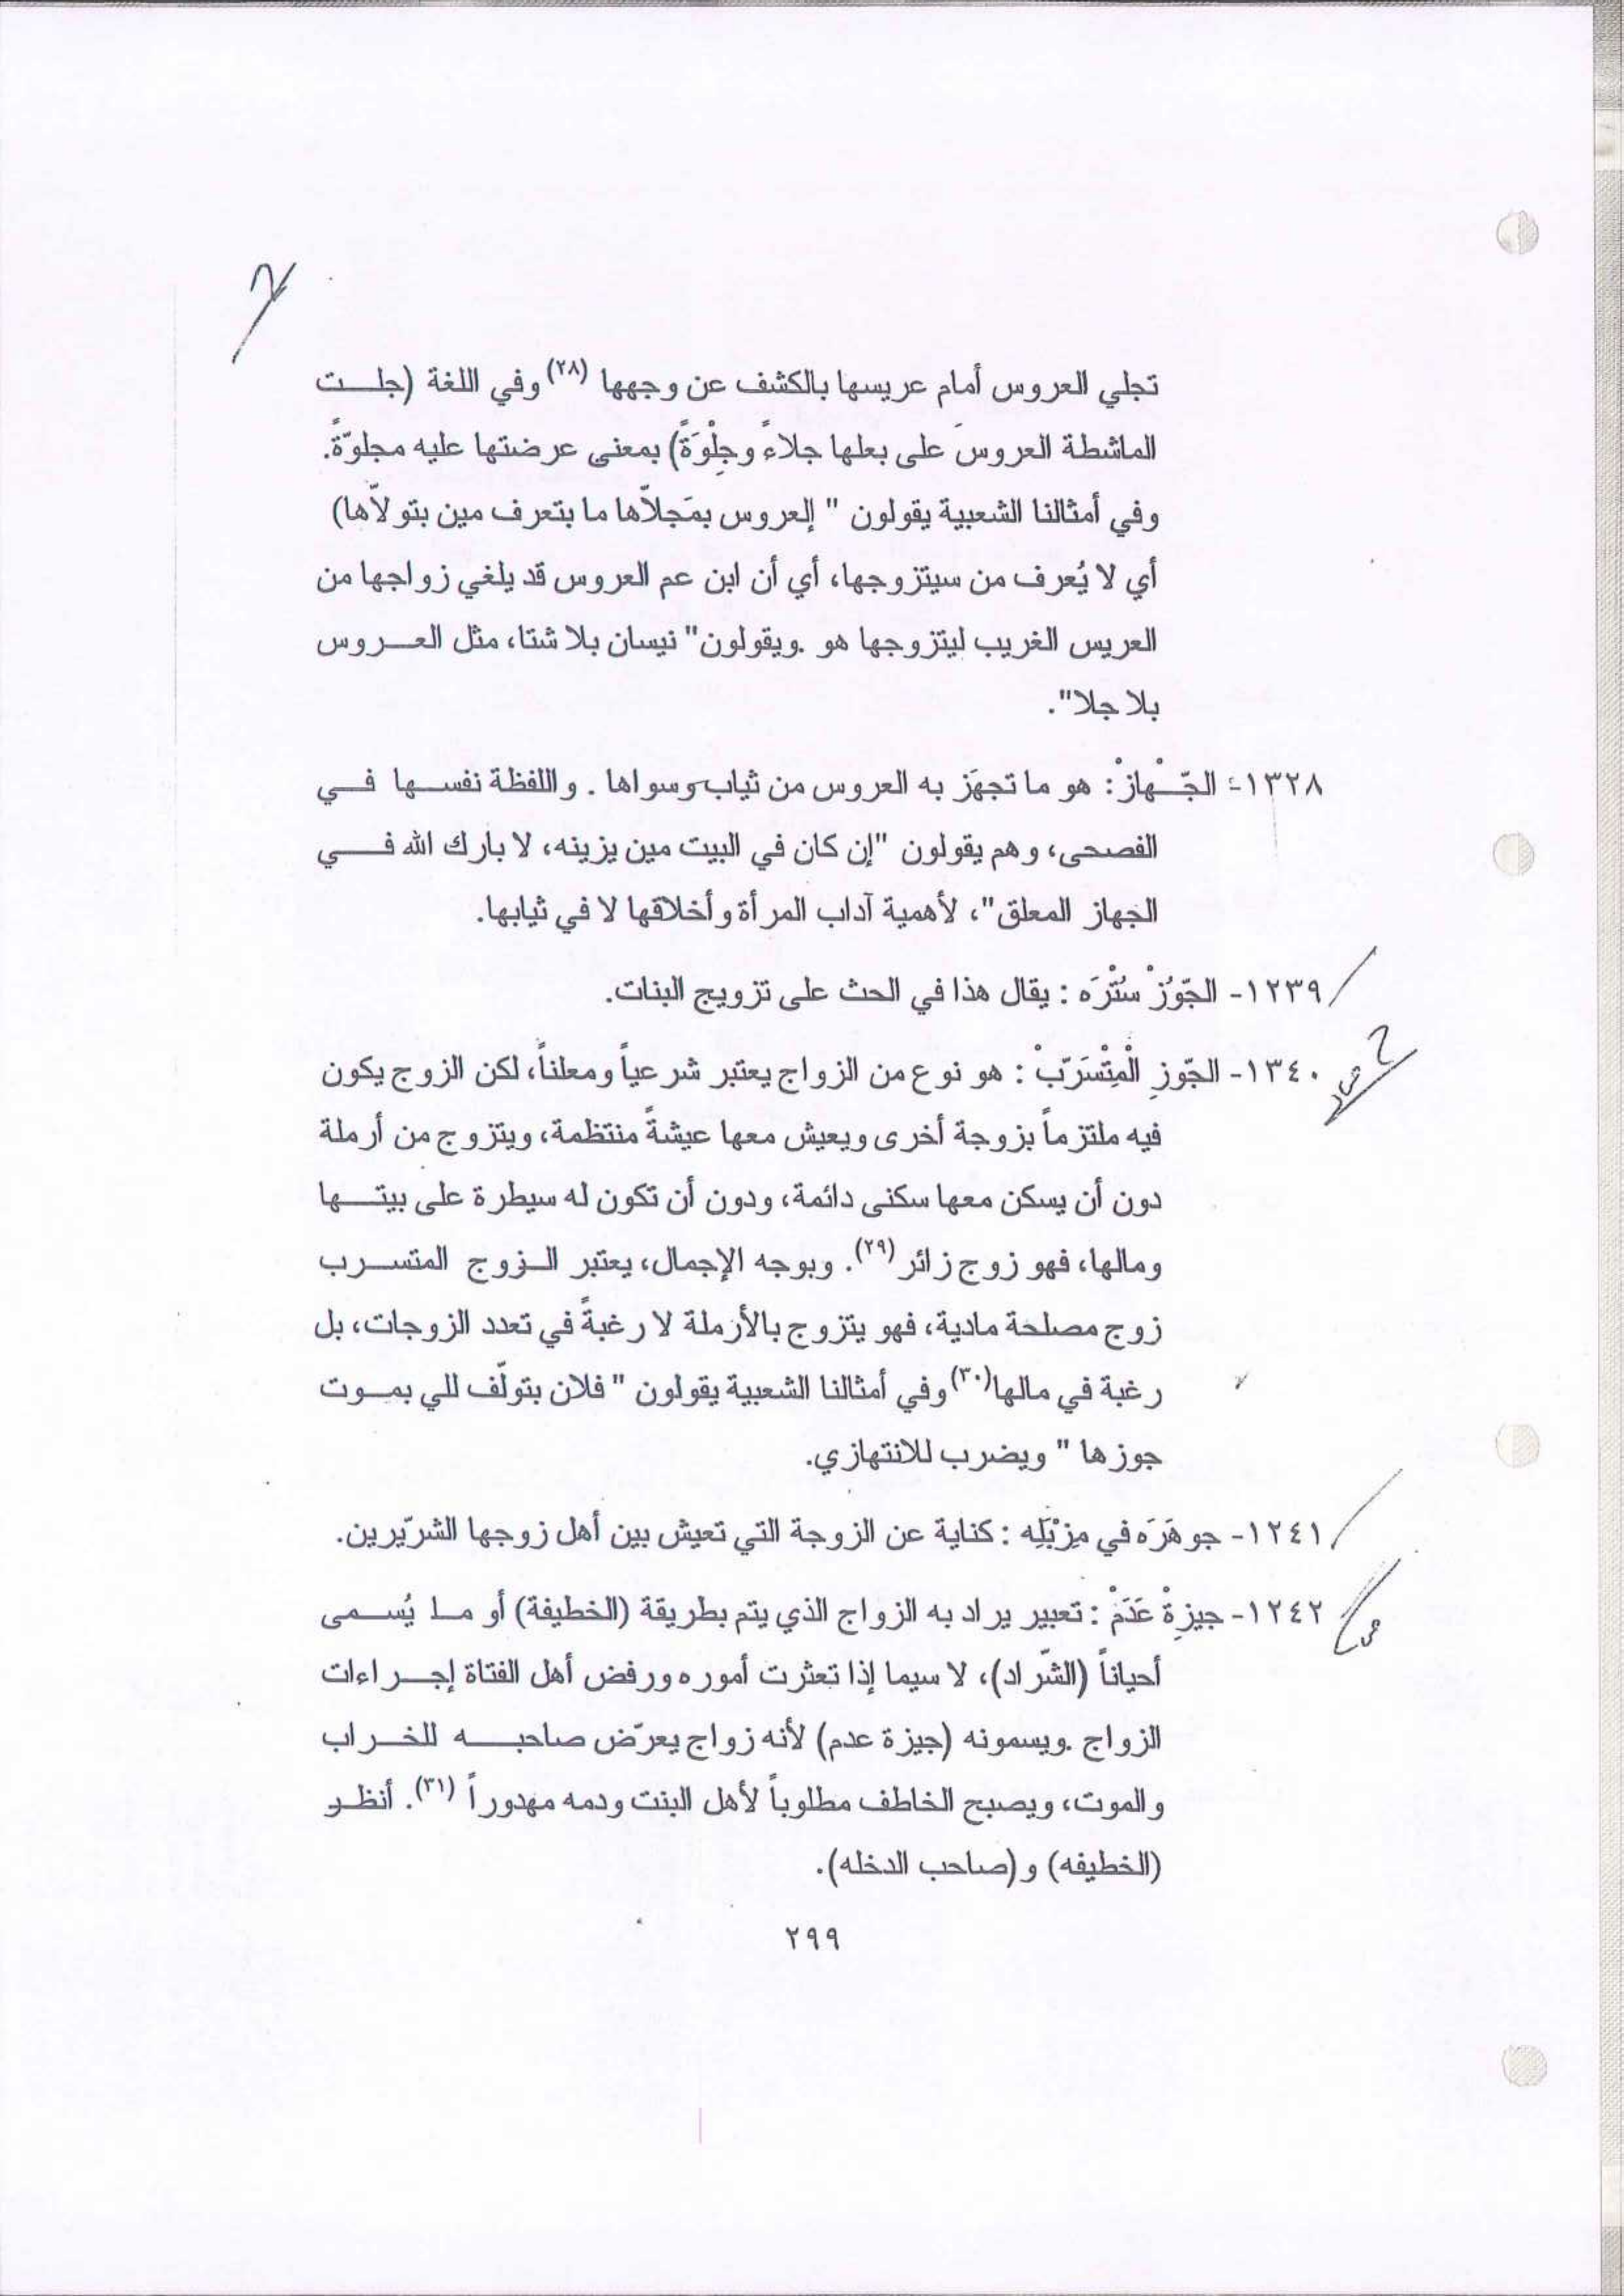 تجلي العروس أمام عريسها بالكشف عن وجهها (٢٨) وفي اللغة (جلت
الماشطة العروسَ على بعلها جلاءً وجِلْوَةً) بمعنى عرضتها عليه مجلوّةً.
وفي أمثالنا الشعبية يقولون " إلعروس بمَجلاّها ما بتعرف مين بتولاّها)
أي لا يُعرف من سيتزوجها، أي أن ابن عم العروس قد يلغي زواجها من
العريس الغريب ليتزوجها هو .ويقولون" نيسان بلا شتا، مثل العروس
بلا جلا".
١٣٢٨- الجّهازْ: هو ما تجهَز به العروس من ثياب وسواها . واللفظة نفسها في
الفصحى، وهم يقولون "إن كان في البيت مين يزينه، لا بارك الله في
الجهاز المعلق"، لأهمية آداب المرأة وأخلاقها لا في ثيابها.
١٢٣٩- الجّوزْ سُتْرَه : يقال هذا في الحث على تزويج البنات.
١٣٤٠- الجّوزِ الْمِتْسَرّبْ : هو نوع من الزواج يعتبر شرعياً ومعلناً، لكن الزوج يكون
فيه ملتزماً بزوجة أخرى ويعيش معها عيشةً منتظمة، ويتزوج من أرملة
دون أن يسكن معها سكنى دائمة، ودون أن تكون له سيطرة على بيتها
ومالها، فهو زوج زائر (٢٩). وبوجه الإجمال، يعتبر الزوج المتسرب
زوج مصلحة مادية، فهو يتزوج بالأرملة لا رغبةً في تعدد الزوجات، بل
رغبة في مالها(٣٠) وفي أمثالنا الشعبية يقولون " فلان بتولّف للي بموت
جوزها " ويضرب للانتهازي.
١٢٤١- جوهَرَه في مِزْبَلِه : كناية عن الزوجة التي تعيش بين أهل زوجها الشرّيرين.
١٢٤٢- جيزِةْ عَدَمْ : تعبير يراد به الزواج الذي يتم بطريقة (الخطيفة) أو ما يُسمى
أحياناً (الشّراد)، لا سيما إذا تعثرت أموره ورفض أهل الفتاة إجراءات
الزواج .ويسمونه (جيزة عدم) لأنه زواج يعرّض صاحبه للخراب
والموت، ويصبح الخاطف مطلوباً لأهل البنت ودمه مهدوراً (٣١). أنظر
(الخطيفه) و(صاحب الدخله).
٢٩٩